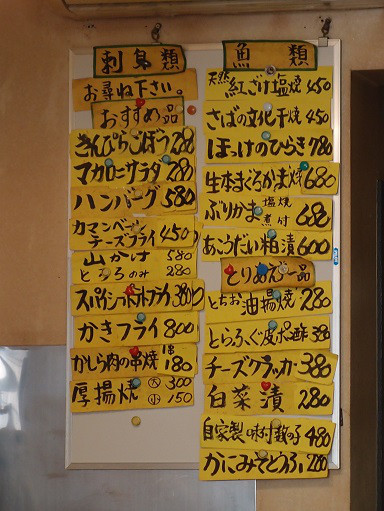 刺身類
お尋ね下さい。
おすすめ品
きんぴらごぼう 280
マカロニサラダ 280
ハンバーグ 580
カマンベール
チーズフライ 450
山かけ 580
とろろのみ 280
スパイシーポテトフライ 380
かきフライ 800
かしら肉の串焼 1本 180
厚揚焼 大 300
小 150
魚類
天然 紅ざけ塩焼 450
さばの文化干焼 450
ほっけのひらき 780
生本まぐろかま焼 680
ぶりかま 塩焼 煮付 680
あこうだい粕漬 600
とりあえず一品
とちお油揚焼 280
とらふぐ皮ポン酢 380
チーズクラッカー 380
白菜漬 280
自家製味付数の子 480
かにみそとうふ 280